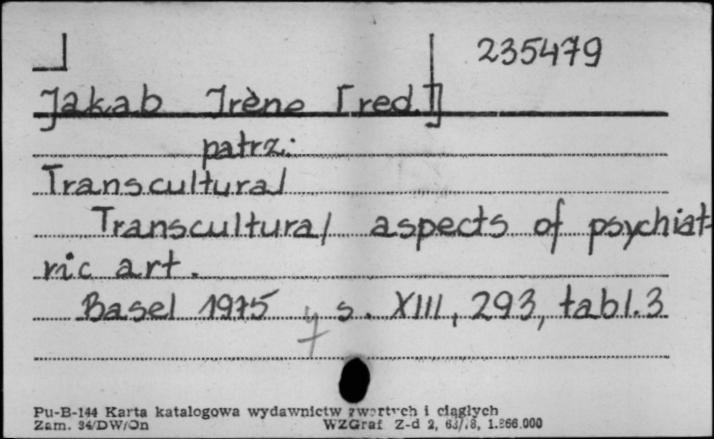 235479
Jakab Irène [red.]
patrz:
Transcultural
Transcultural aspects of psychiat-
ric art.
Basel 1975 s. XIII, 293, tabl. 3
Pu-B-144 Karta katalogowa wydawnictw zwartych i ciągłych
Zam. 34/DW/On WZGraf Z-d 2, 63/78, 1.866.000